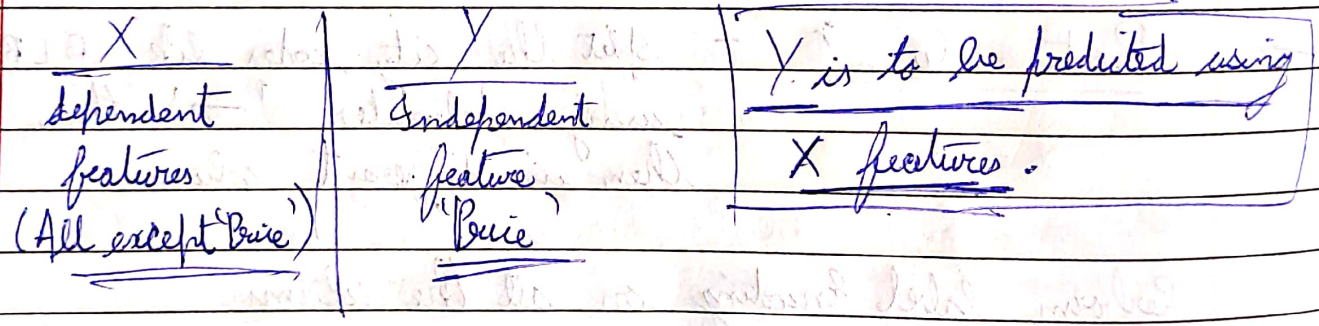 X
dependent
features
(All except 'Price')
Y
Independent
feature
'Price'
Y is to be predicted using
X features.